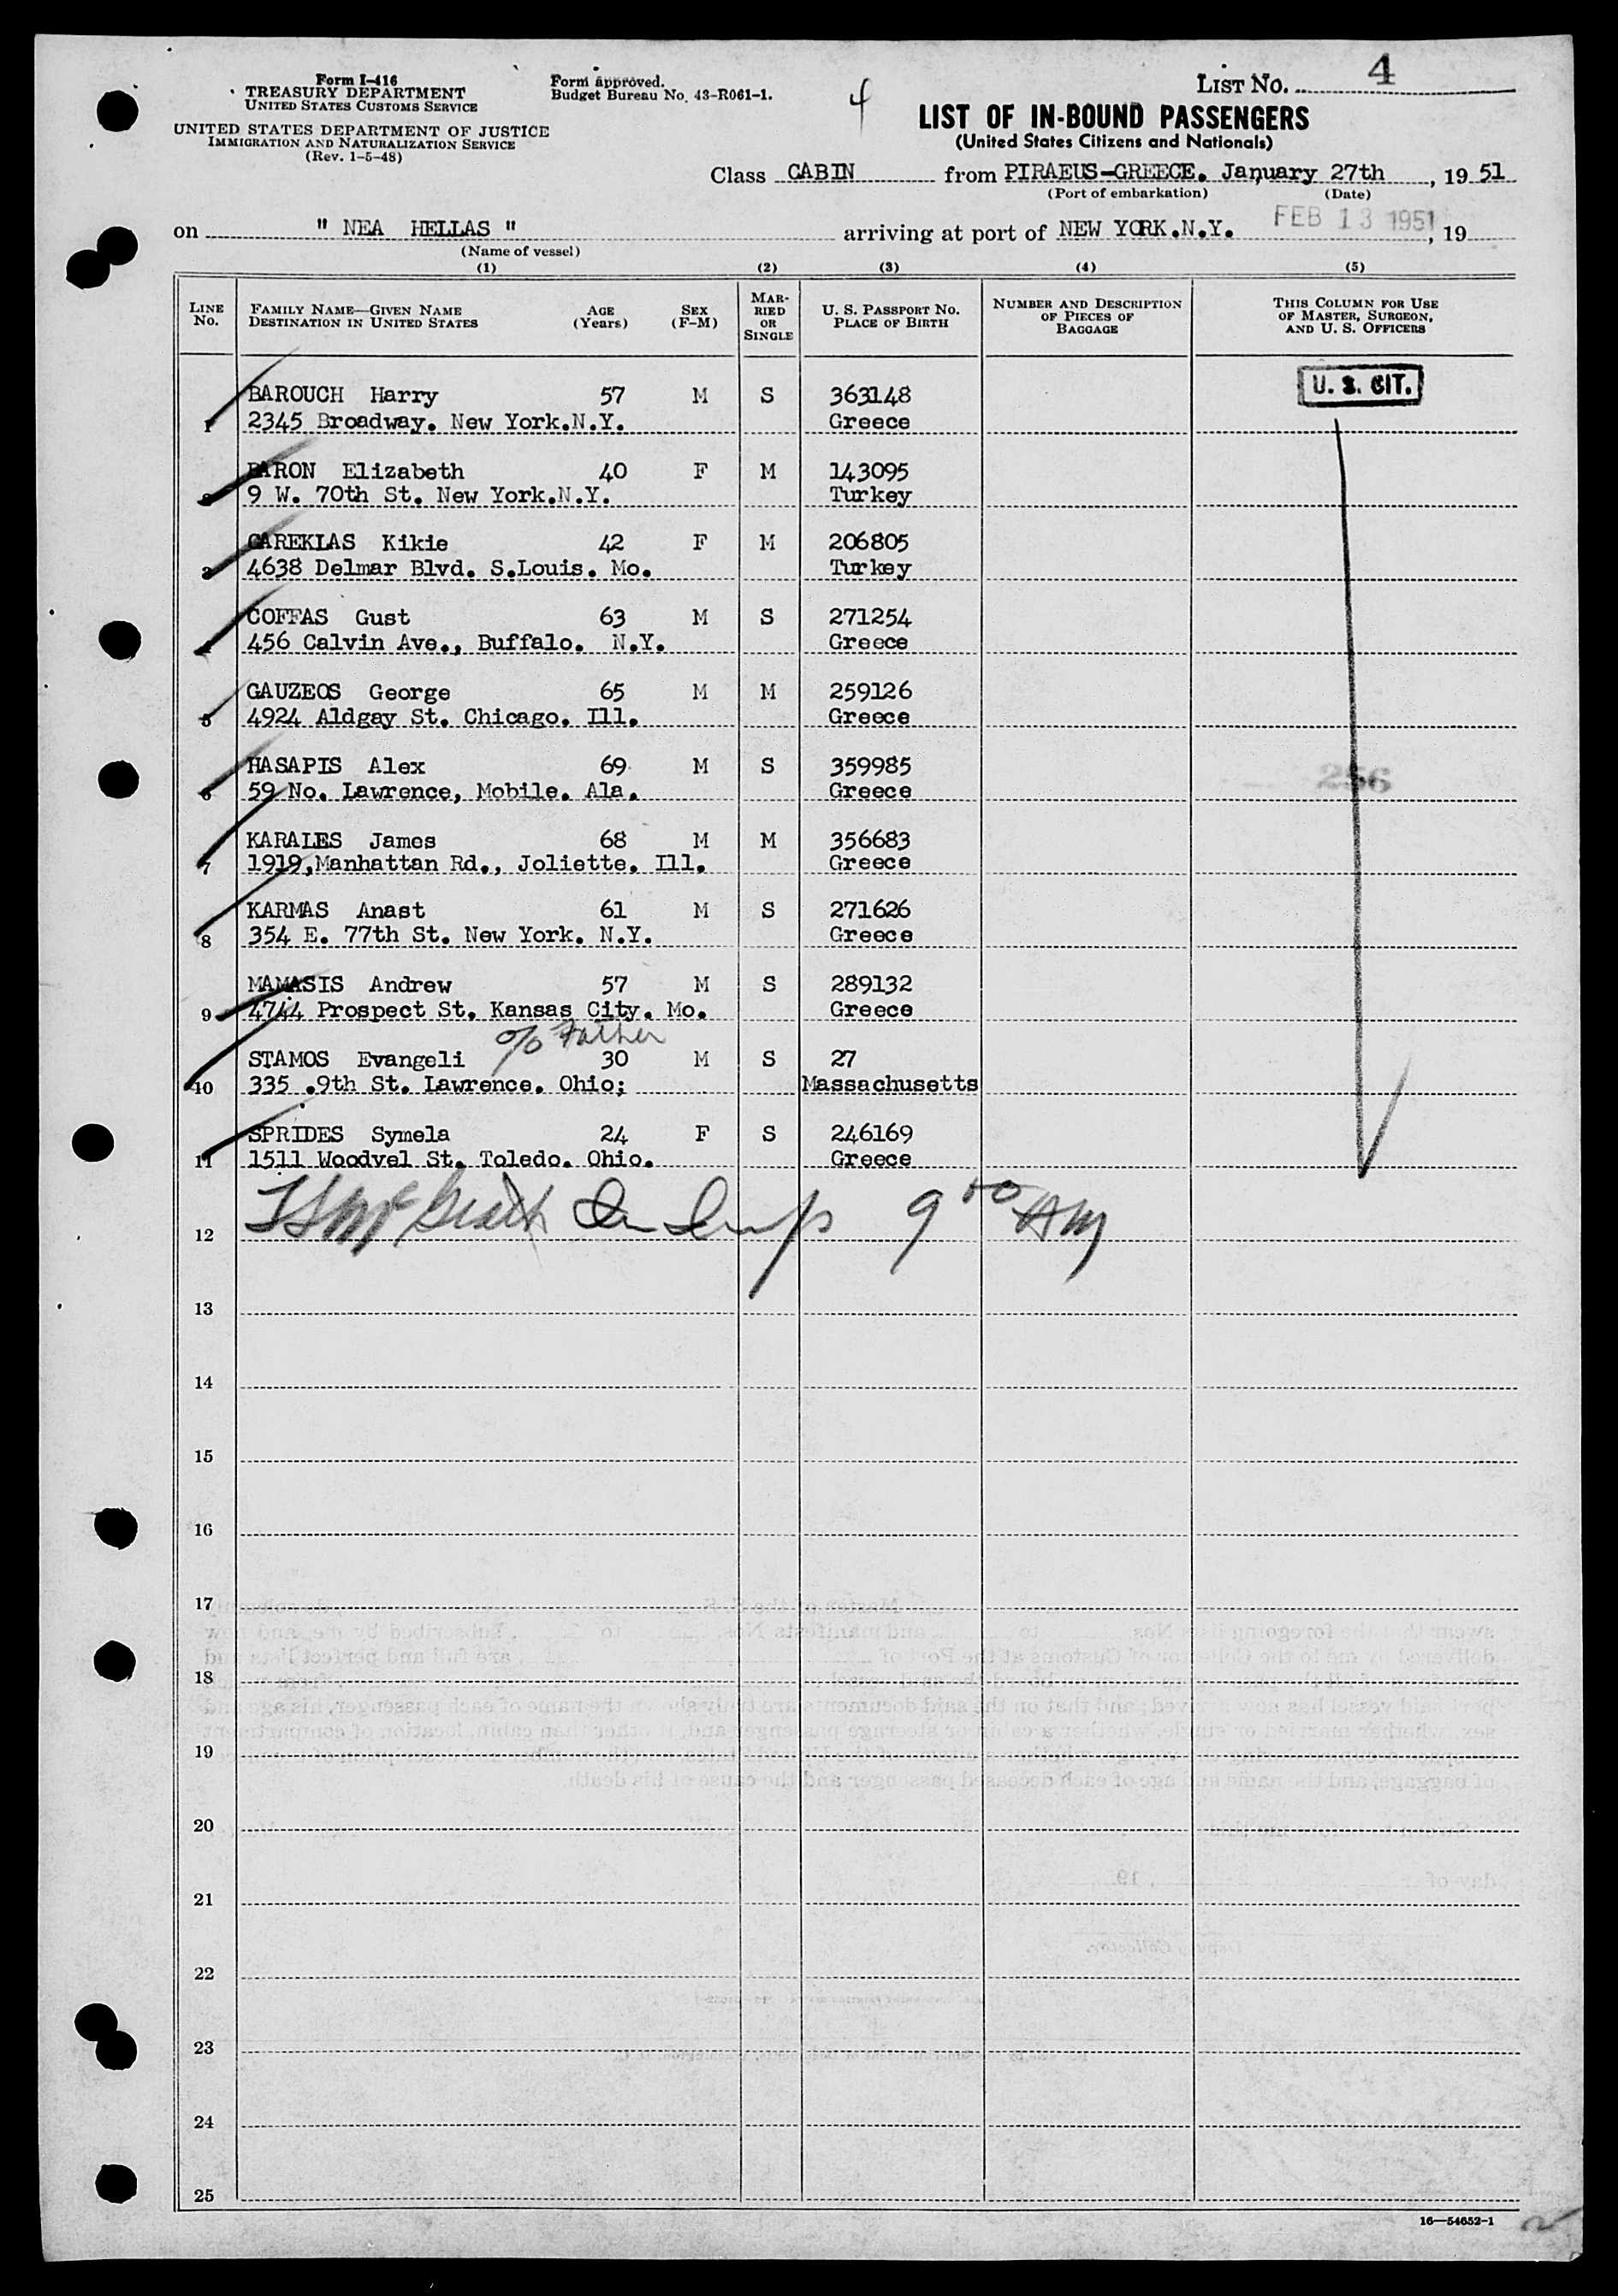 Form I-416
TREASURY DEPARTMENT
UNITED STATES CUSTOMS SERVICE
UNITED STATES DEPARTMENT OF JUSTICE
IMMIGRATION AND NATURALIZATION SERVICE
(Rev. 1-5-48)
Form approved.
Budget Bureau No. 43-R061-1.
4
LIST No. 4
LIST OF IN-BOUND PASSENGERS
(United States Citizens and Nationals)
Class CABIN from PIRAEUS-GREECE. January 27th, 19 51
(Port of embarkation) (Date)
on " NEA HELLAS " arriving at port of NEW YORK.N.Y. FEB 13 1951, 19
(Name of vessel)
(1) (2) (3) (4) (5)
LINE No. FAMILY NAME—GIVEN NAME DESTINATION IN UNITED STATES AGE (Years) SEX (F-M) MARRIED OR SINGLE U. S. PASSPORT NO. PLACE OF BIRTH NUMBER AND DESCRIPTION OF PIECES OF BAGGAGE THIS COLUMN FOR USE OF MASTER, SURGEON, AND U. S. OFFICERS
BAROUCH Harry 57 M S 363148 U. S. CIT.
1 2345 Broadway. New York.N.Y. Greece
BARON Elizabeth 40 F M 143095
2 9 W. 70th St. New York.N.Y. Turkey
CAREKLAS Kikie 42 F M 206805
3 4638 Delmar Blvd. S.Louis. Mo. Turkey
COFFAS Gust 63 M S 271254
4 456 Calvin Ave., Buffalo. N.Y. Greece
GAUZEOS George 65 M M 259126
5 4924 Aldgay St. Chicago. Ill. Greece
HASAPIS Alex 69 M S 359985 256
6 59 No. Lawrence, Mobile. Ala. Greece
KARALES James 68 M M 356683
7 1919,Manhattan Rd., Joliette. Ill. Greece
KARMAS Anast 61 M S 271626
8 354 E. 77th St. New York. N.Y. Greece
MAMASIS Andrew 57 M S 289132
9 4744 Prospect St. Kansas City. Mo. Greece
% Father
STAMOS Evangeli 30 M S 27
10 335 .9th St. Lawrence. Ohio; Massachusetts
SPRIDES Symela 24 F S 246169
11 1511 Woodvel St. Toledo. Ohio. Greece
12 9 00 AM
13
14
15
16
17
18
19
20
21
22
23
24
25
16—54652-1